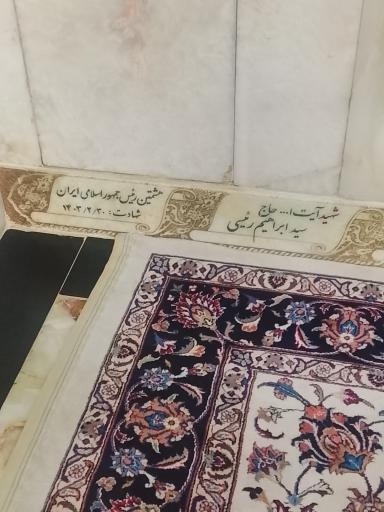 شهید آیت ا... حاج
سید ابراهیم رئیسی
هشتمین رئیس جمهور اسلامی ایران
شهادت: ۱۴۰۳/۲/۳۰